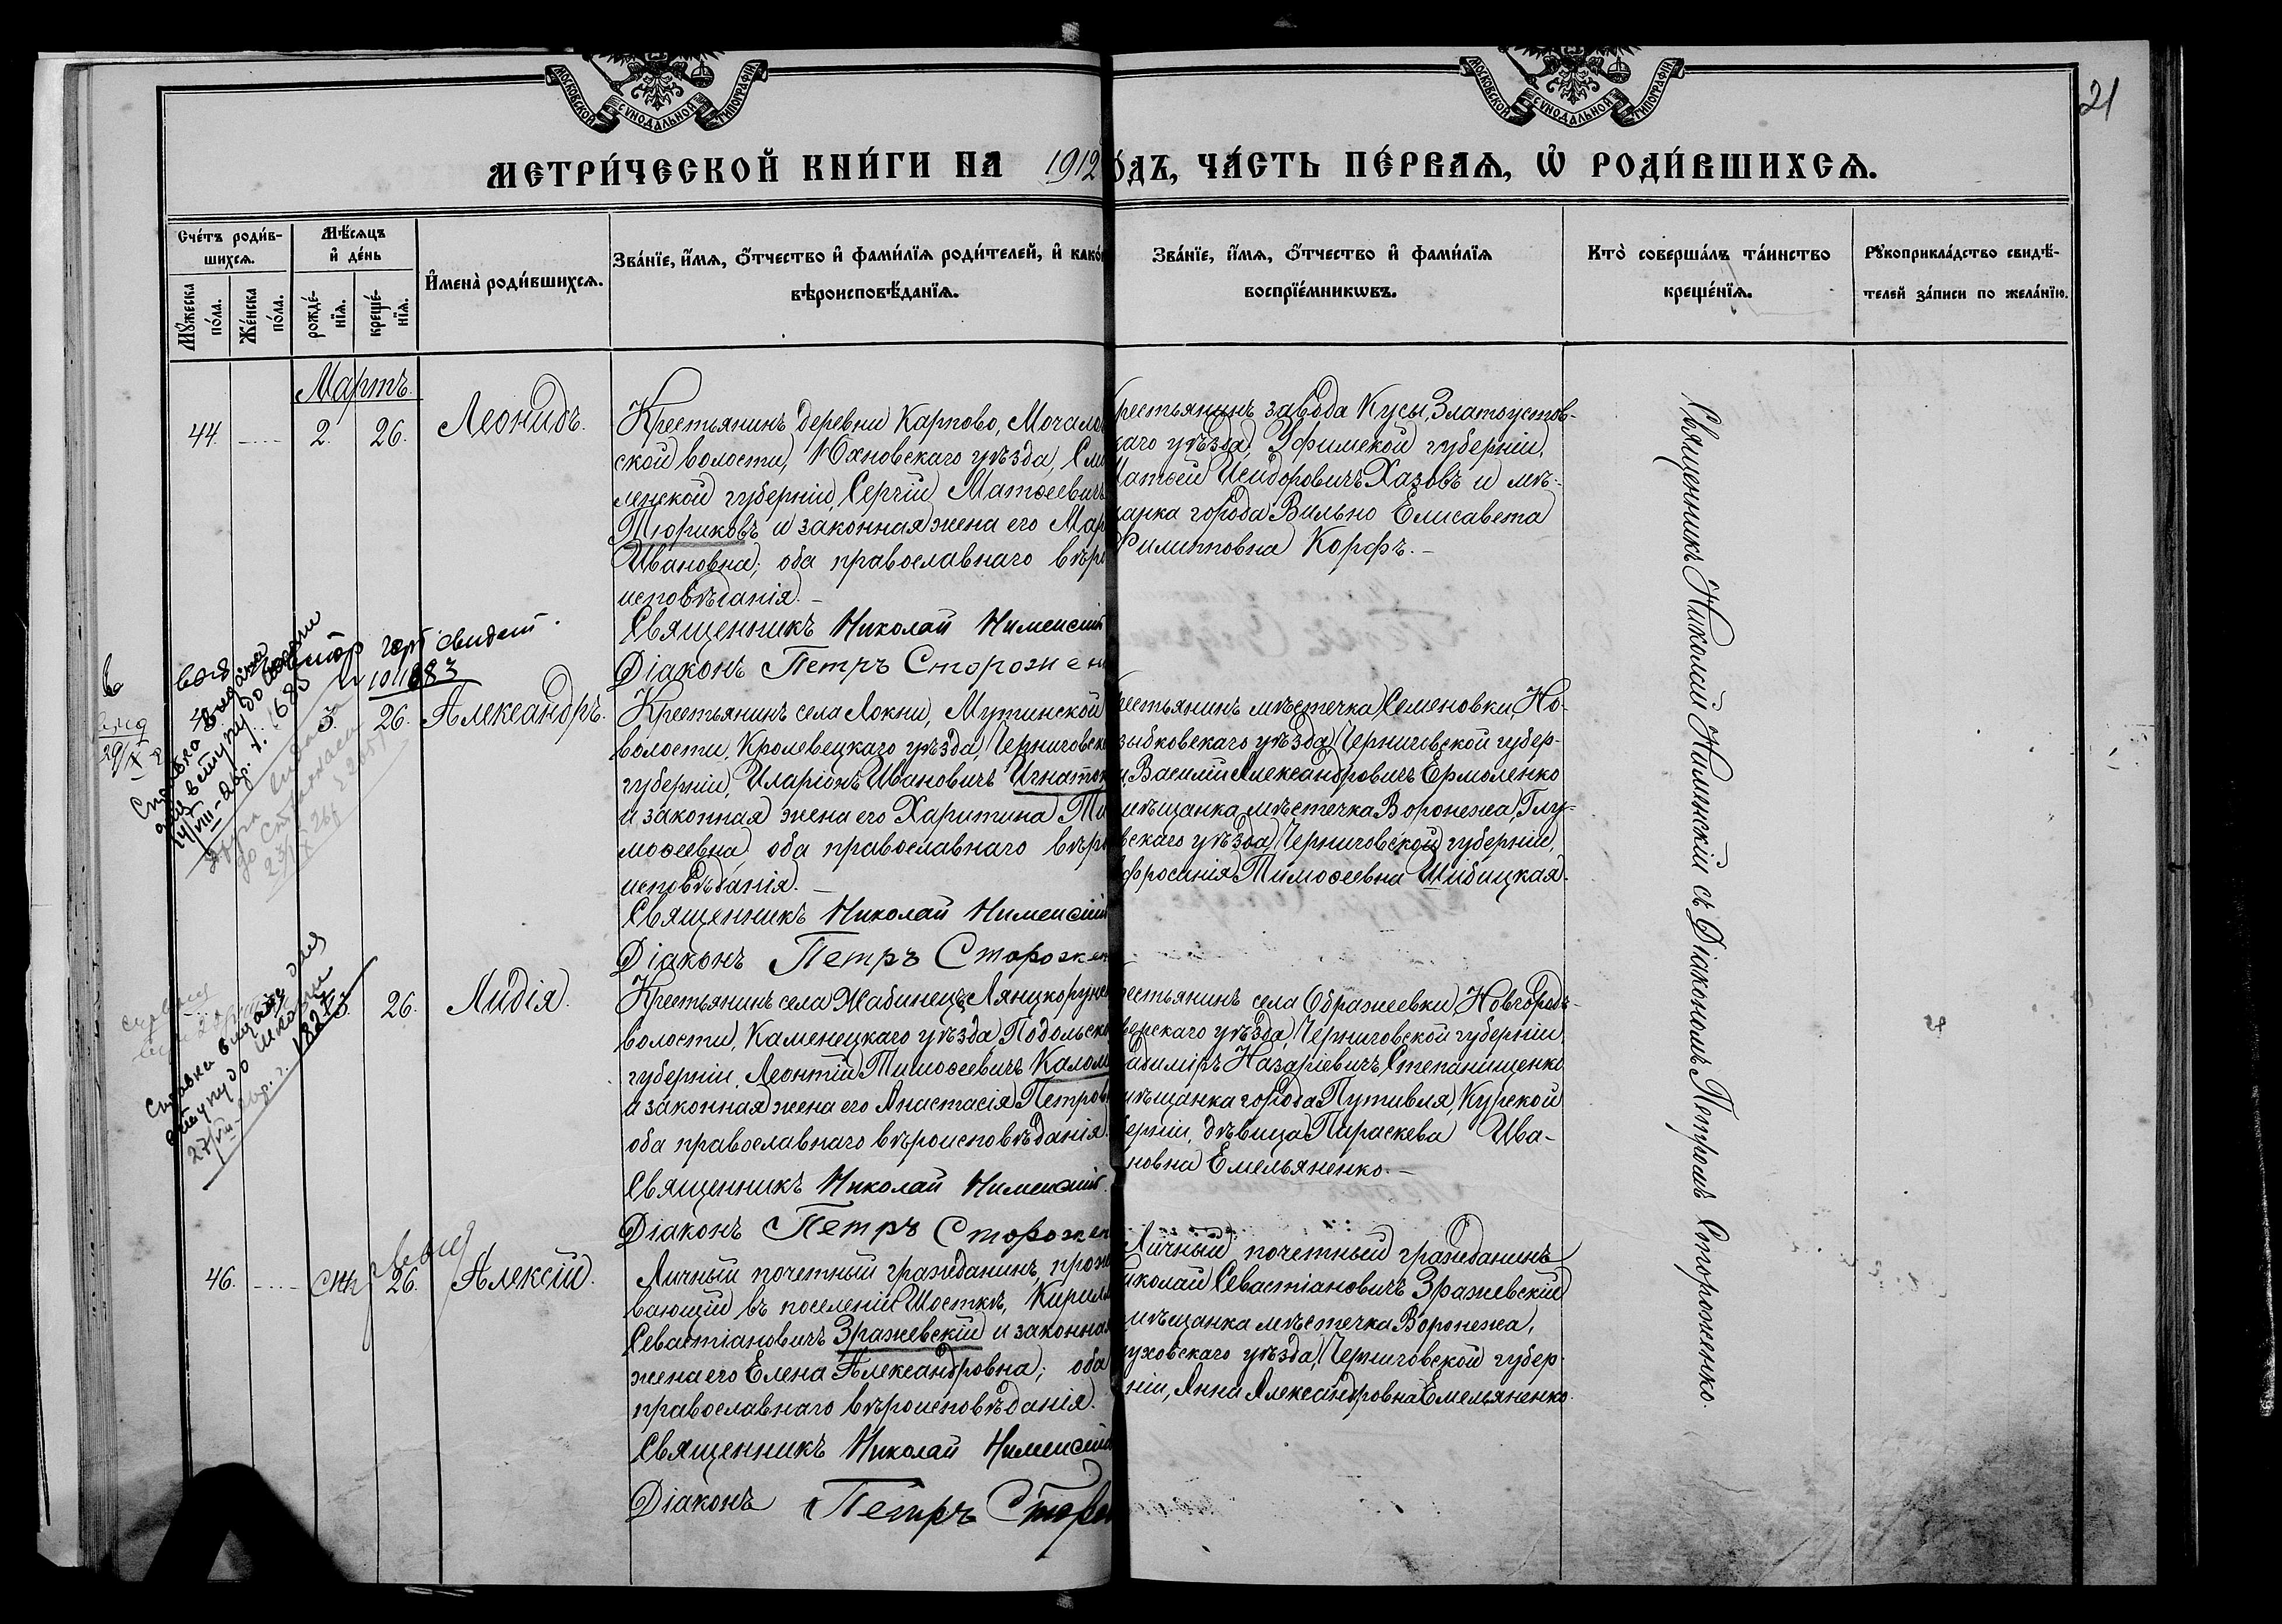 МОСКОВСКОЙ СѴНОДАЛЬНОЙ ТИПОГРАФІИ
МОСКОВСКОЙ СѴНОДАЛЬНОЙ ТИПОГРАФІИ
21
МЕТРИ́ЧЕСКОЙ КНИ́ГИ НА 1912
ОДЪ, ЧА́СТЬ ПЕ́РВАѦ, Ѡ҆ РОДИ́ВШИХСѦ.
Сче́тъ роди́в-
шихсѧ.
Мꙋ́жеска
по́ла.
Же́нска
по́ла.
Мѣ́сѧцъ
и҆ де́нь
рожде́-
нїѧ.
креще́-
нїѧ.
И҆мена̀ роди́вшихсѧ.
Зва́нїе, и҆́мѧ, ѻ҆́тчество и҆ фами́лїѧ роди́телей, и҆ како́
вѣроисповѣ́данїѧ.
Зва́нїе, и҆́мѧ, ѻ҆́тчество и҆ фами́лїѧ
воспрїе́мникѡвъ.
Кто̀ соверша́лъ та́инство
креще́нїѧ.
Рꙋкоприкла́дство свидѣ́-
телей за́писи по жела́нїю.
Мартъ.
44. 2. 26. Леонидъ.
Крестьянинъ деревни Карпово, Мочало
ской волости, Юхновскаго уѣзда, Смо
ленской губерніи, Сергій Матѳеевичъ
Тюриковъ и законная жена его Мар
Ивановна; оба православнаго вѣро
исповѣданія.
Священникъ Николай Нименскій
Діаконъ Петръ Сторожен
рестьянинъ завода Кусы, Златоустов-
каго уѣзда, Уфимской губерніи,
Матѳей Исидоровичъ Хазовъ и мѣ-
щанка города Вильно Елисавета
Филипповна Корфъ.
свидет.
3. 26. Александръ.
Крестьянинъ села Локни, Мутинской
волости, Кролевецкаго уѣзда, Черниговско
губерніи, Иларіонъ Ивановичъ Игнатон
и законная жена его Харитина Ти
моѳеевна, оба православнаго вѣро
исповѣданія.
Священникъ Николай Нименскій
Діаконъ Петръ Сторожен
рестьянинъ мѣстечка Семеновки, Но-
зыбковскаго уѣзда, Черниговской губер-
и, Василій Александровичъ Ермоленко
мѣщанка мѣстечка Воронежа, Глу-
вскаго уѣзда, Черниговской губерніи,
фросинія Тимоѳеевна Шибицкая.
Справка
3. 26. Лидія.
Крестьянинъ села Жабинецъ, Лянцкорунс
волости, Каменецкаго уѣзда, Подольско
губерніи, Леонтій Тимоѳеевичъ Калом
и законная жена его Анастасія Петров
оба православнаго вѣроисповѣданія.
Священникъ Николай Нименскій
Діаконъ Петръ Сторожен
рестьянинъ села Ображеевки, Новгородъ-
верскаго уѣзда, Черниговской губерніи,
ладиміръ Назаріевичъ Степанищенко
мѣщанка города Путивля, Курской
берніи, дѣвица Параскева Ива-
новна Емельяненко.
46. 26. Алексій.
Личный почетный гражданинъ, прожи
вающій въ поселеніи Шосткѣ, Кирилл
Севастіановичъ Зражевскій и законная
жена его Елена Александровна; оба
православнаго вѣроисповѣданія.
Священникъ Николай Нименскій
Діаконъ Петръ Сторо
Личный почетный гражданинъ
иколай Севастіановичъ Зражевскій
мѣщанка мѣстечка Воронежа,
луховскаго уѣзда, Черниговской губер-
ніи, Анна Александровна Емельяненко.
Священникъ Николай Нименскій съ Діакономъ Петромъ Стороженко.